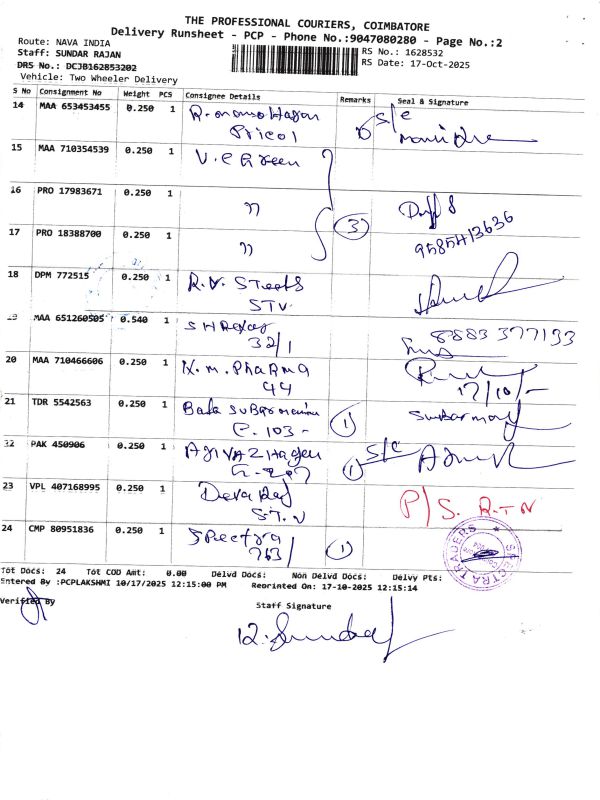 THE PROFESSIONAL COURIERS, COIMBATORE
Delivery Runsheet - PCP - Phone No.:9047080280 - Page No.:2
Route: NAVA INDIA
RS No.: 1628532
Staff: SUNDAR RAJAN
RS Date: 17-Oct-2025
DRS No.: DCJB162853202
Vehicle: Two Wheeler Delivery
S No Consignment No Weight PCS Consignee Details Remarks Seal & Signature
14 MAA 653453455 0.250 1 s/c
Pricol
15 MAA 710354539 0.250 1 V.C Green
16 PRO 17983671 0.250 1 " 3
9585413636
17 PRO 18388700 0.250 1 "
18 DPM 772515 0.250 1 R.V. Steels
STV
MAA 651260505 0.540 1 8883377133
32/1
20 MAA 710466606 0.250 1 N.M. Pharma
44 17/10/-
21 TDR 5542563 0.250 1 Bala 1
C. 103-
PAK 450906 0.250 1 s/c
G-207 1
23 VPL 407168995 0.250 1 Devaraj P/S. RTN
ST.V
24 CMP 80951836 0.250 1 Spectra 1
263/
SPECTRA TRADERS
Tot Docs: 24 Tot COD Amt: 0.00 Delvd Docs: Non Delvd Docs: Delvy Pts:
Entered By :PCPLAKSHMI 10/17/2025 12:15:00 PM Reprinted On: 17-10-2025 12:15:14
Verified By
Staff Signature